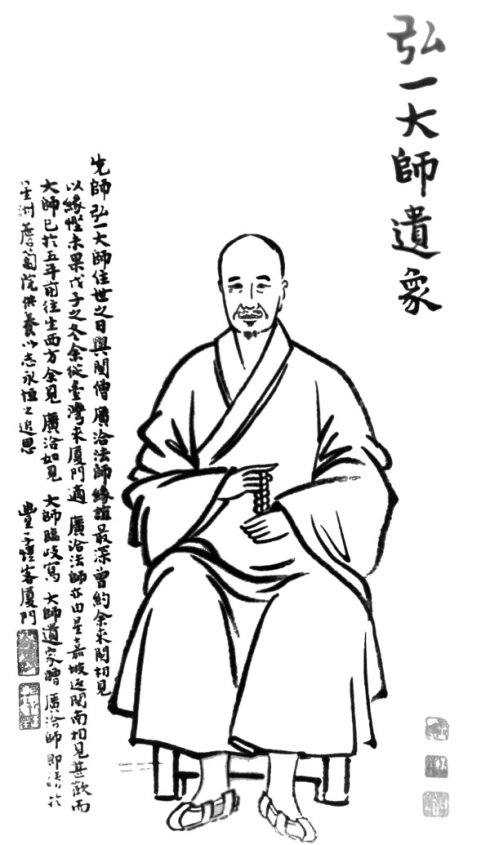 弘一大師遺象
先師弘一大師住世之日與閩僧廣洽法師緣誼最深曾約余來閩相見
以緣慳未果戊子之冬余從臺灣來厦門適廣洽法師亦由星嘉坡返閩南相見甚歡而
大師已於五年前往生西方余見廣洽如見大師臨歧寫大師遺象贈廣洽師即請於
星洲薝蔔院供養以志永恒之追思
豐子愷客厦門